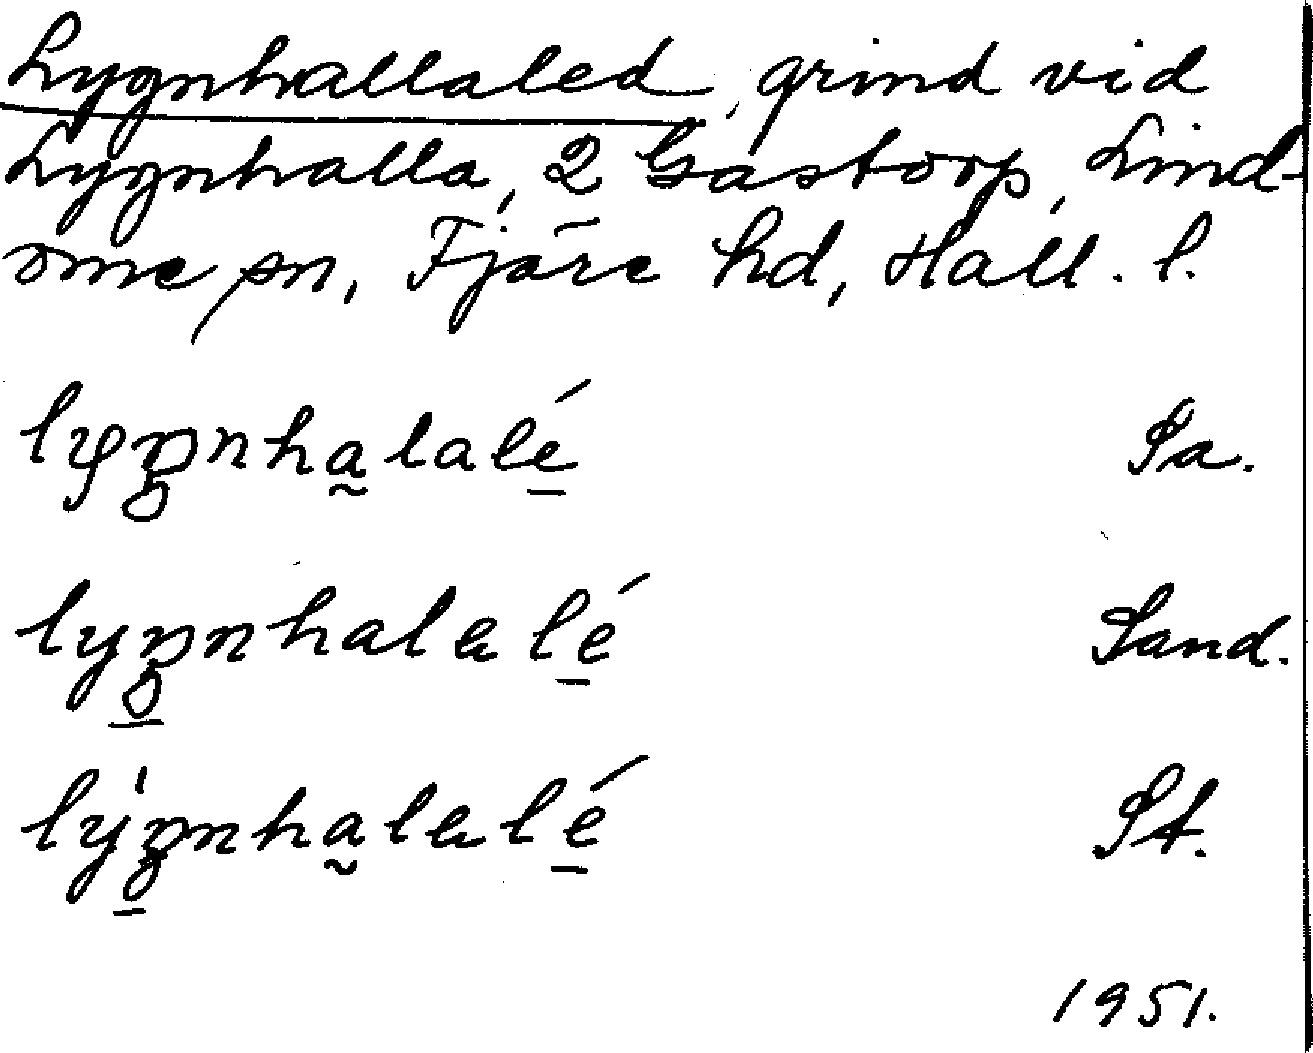 Lygnhallaled, grind vid
Lygnhalla, 2 Gastorp, Lind-
ome sn, Fjäre hd, Hall. l.
lygnhalalé Sa.
lygnhalalé Sand.
lýgnhalalé St.
1951.